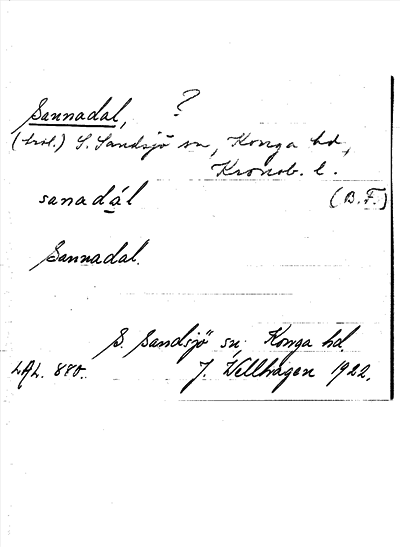 Sannadal, ?
(trol.) S. Sandsjö sn, Konga hd,
Kronob. l.
sanadál (B.F.)
Sannadal.
S. Sandsjö sn, Konga hd.
LAL. 880. J. Wellhagen 1922.